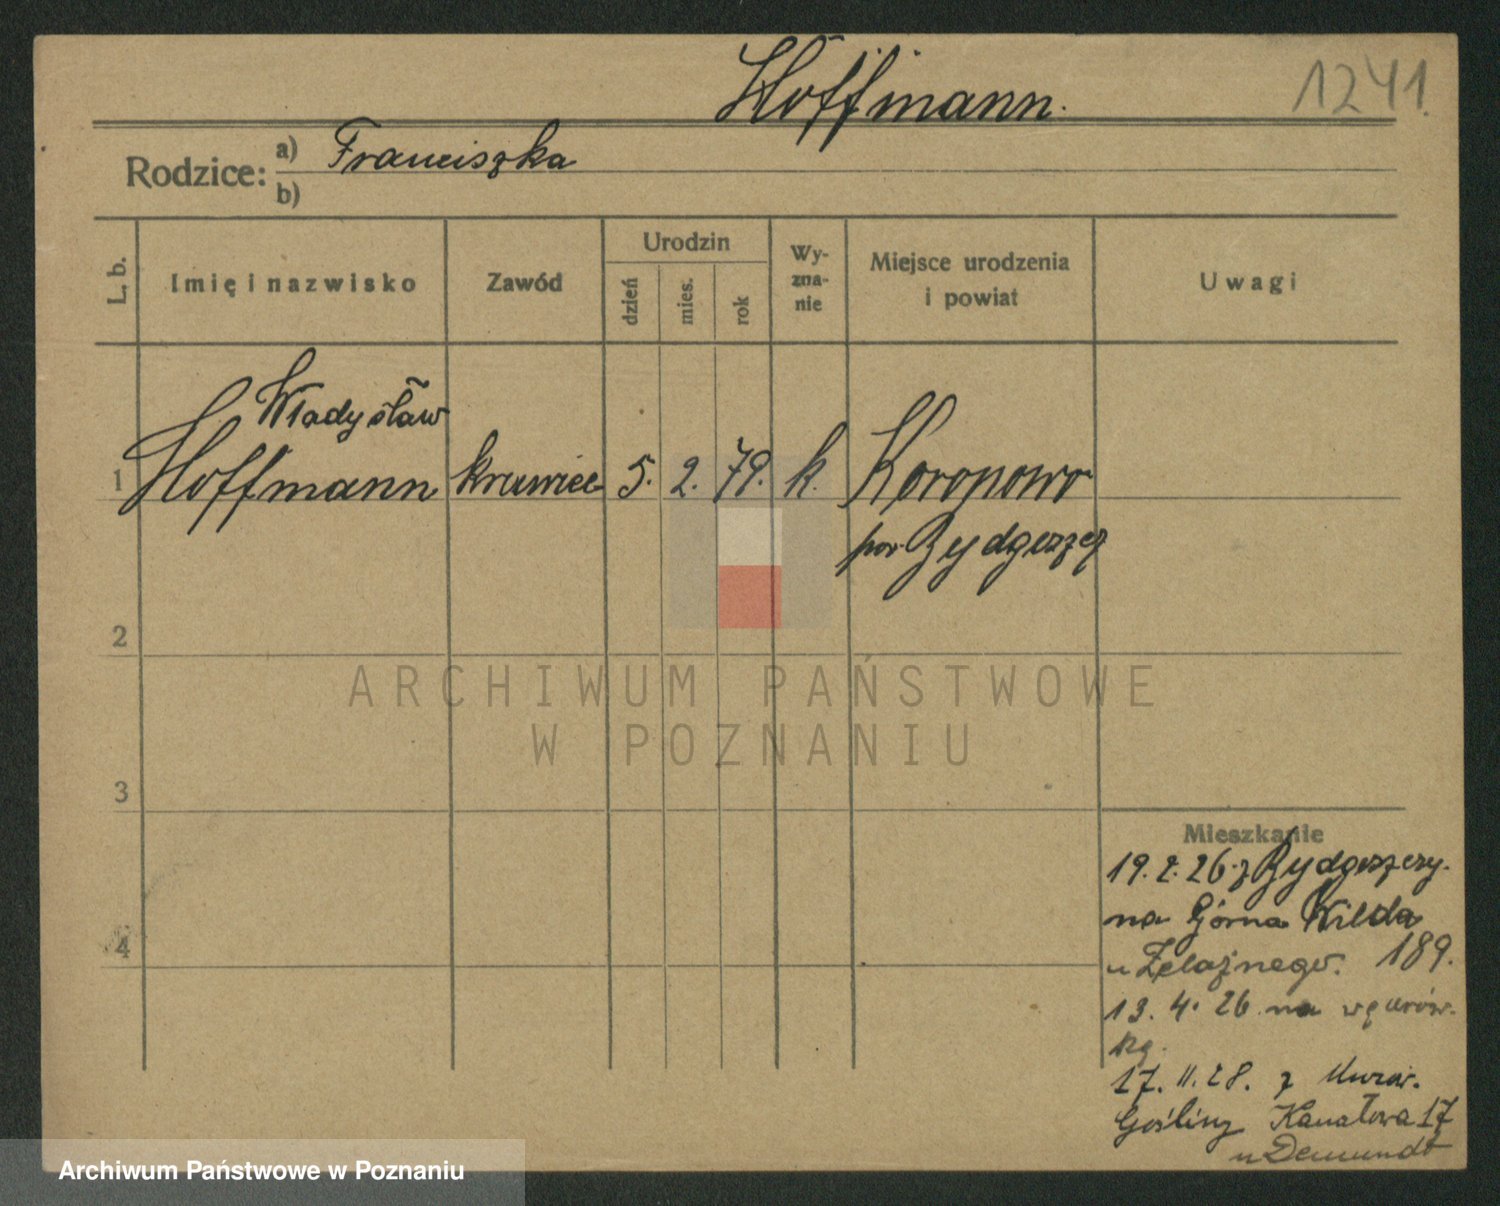 Hoffmann.
1241.
Rodzice: a) Franciszka
b)
L. b.
Imię i nazwisko
Zawód
Urodzin
dzień
mies.
rok
Wy-
zna-
nie
Miejsce urodzenia
i powiat
Uwagi
Władysław
1 Hoffmann krawiec 5. 2. 79. k. Koronowo
pow. Bydgoszcz
2
ARCHIWUM PAŃSTWOWE
W POZNANIU
3
Mieszkanie
19.2.26. z Bydgoszczy.
na Górna Wilda
u Żelaznego. 189.
4
13. 4. 26 na
17. 11. 28. z Murow.
Gośliny Kanałowa 17
u Demundt
Archiwum Państwowe w Poznaniu